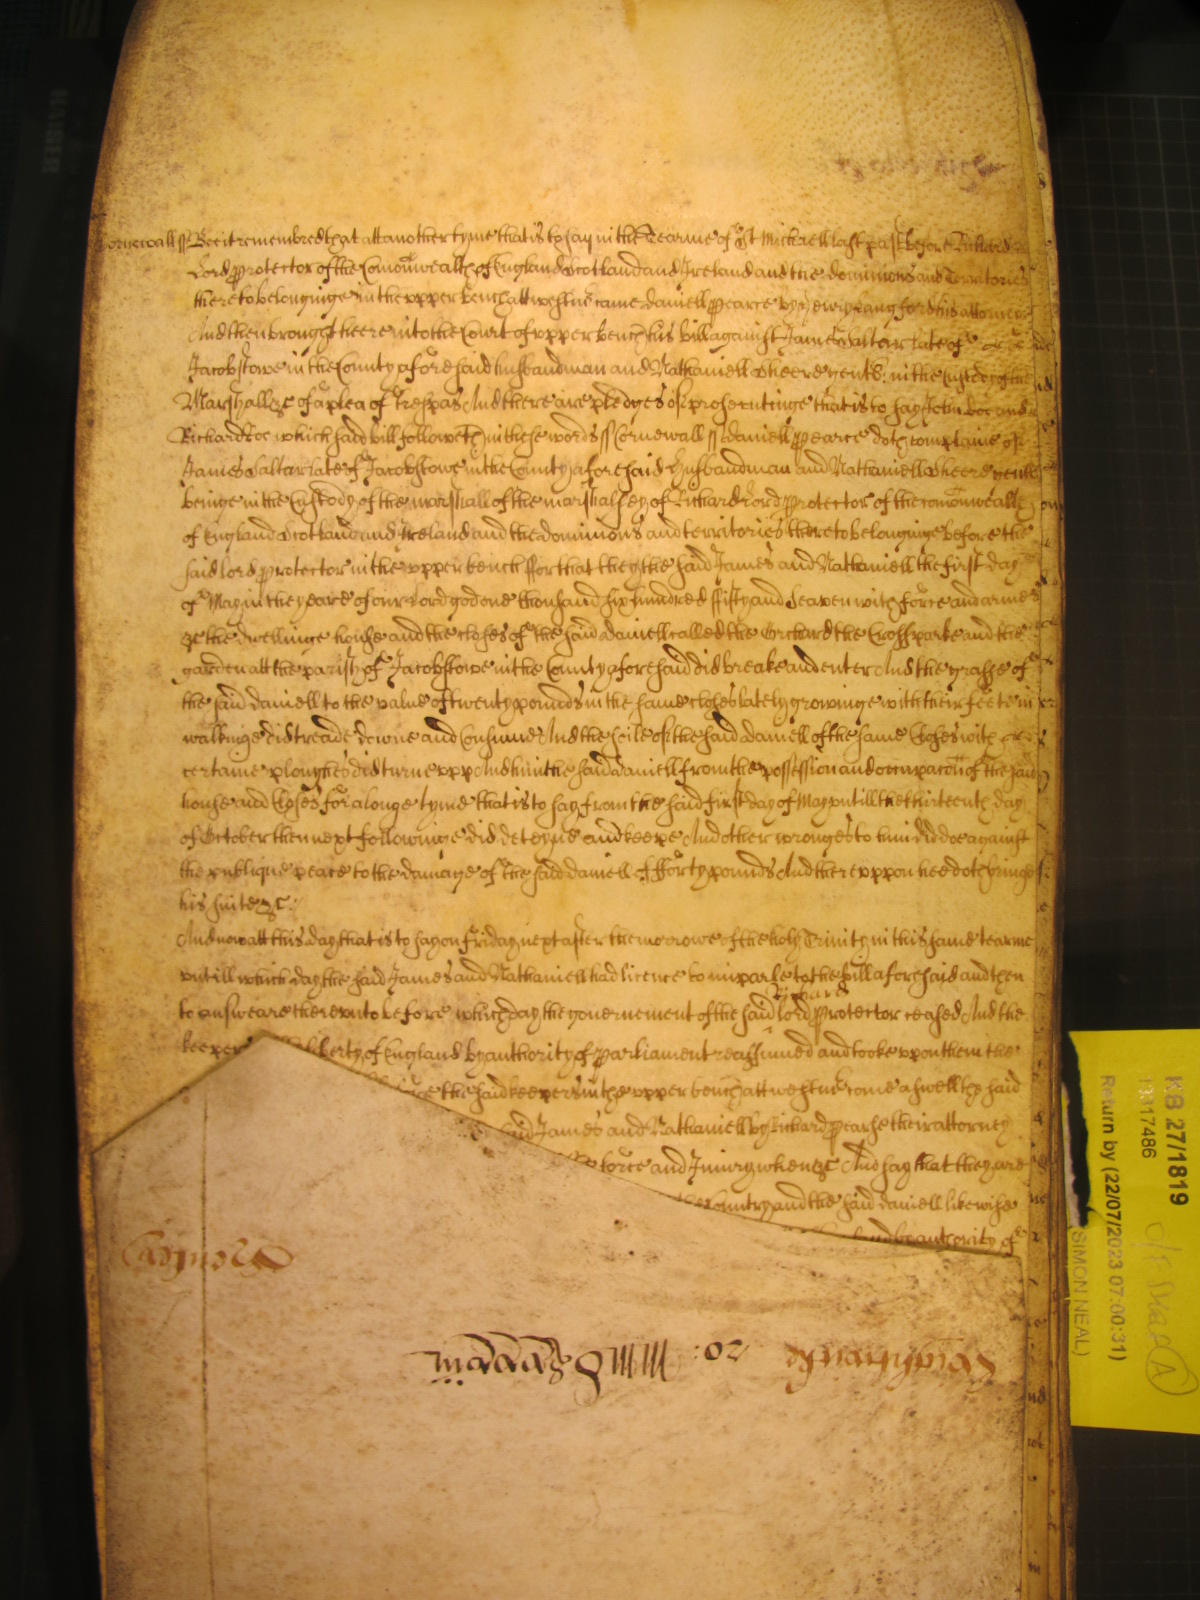 Cornewall ss Bee it remembred that att another tyme that is to say in the Tearme of St Michaell last past before Richard
Lord Protector of the Comonwealth of England Scotland and Ireland and the dominions and Territories
thereto belonginge in the upper bench att Westmr came daniell Pearce by Henry Langford his attorney
And then brought heere into the Court of upper bench his bill against James Saltar late of
Jacobstowe in the County aforesaid husbandman and Nathaniell Wheere gent in the Custody of the
Marshall &c of a plea of Trespas And there are pledges of prosecutinge that is to say John doe and
Richard Roe which said bill followeth in these words ss Cornewall ss daniell Pearce doth complaine of
James Saltar late of Jacobstowe in the County aforesaid Husbandman and Nathaniell Wheere gentl
beinge in the Custody of the marshall of the marshalsey of Richard Lord Protector of the comonwealth
of England Scotland and Ireland and the dominions and territories thereto belonginge before the
said lord Protector in the upper bench ffor that they the said James and Nathaniell the first day
of May in the yeare of our Lord god one thousand six hundred ffifty and Seaven with force and armes
&c the dwellinge house and the closes of the said daniell called the Orchard the Crosse parke and the
garden att the parish of Jacobstowe in the County aforesaid did breake and enter And the grasse of
the said daniell to the value of twenty pounds in the same closes lately growinge with their feete in
walkinge did treade downe and Consume And the soile of the said daniell of the same Closes with
certaine ploughes did turne upp And him the said daniell from the possession and occupacon of the said
house and Closes for a longe tyme that is to say from the said first day of May untill the thirteenth day
of October then next followinge did deteyne and keepe And other wronges to him did doe against
the publique peace to the damage of the said daniell of fforty pounds And thereuppon hee doth bringe
his suite &c:
And now att this day that is to say on Friday next after the morrowe of the holy Trinity in this same tearme
untill which day the said James and Nathaniell had licence to imparle to the bill aforesaid and then
Richard
to answeare thereunto before which day the governement of the said lord Protector ceased And the
keepers liberty of England by authority of Parliament reassumed and tooke upon them the
the said keepers in the upper bench att Westmr come aswell the said
said James and Nathaniell by Richard Pearse their attorney
force and Iniury when &c And say that they are
the Country and the said daniell likewise
by authority of
20:
KB 27/1819
13317486
Return by (22/07/2023 07:00:31)
SIMON NEAL)
A